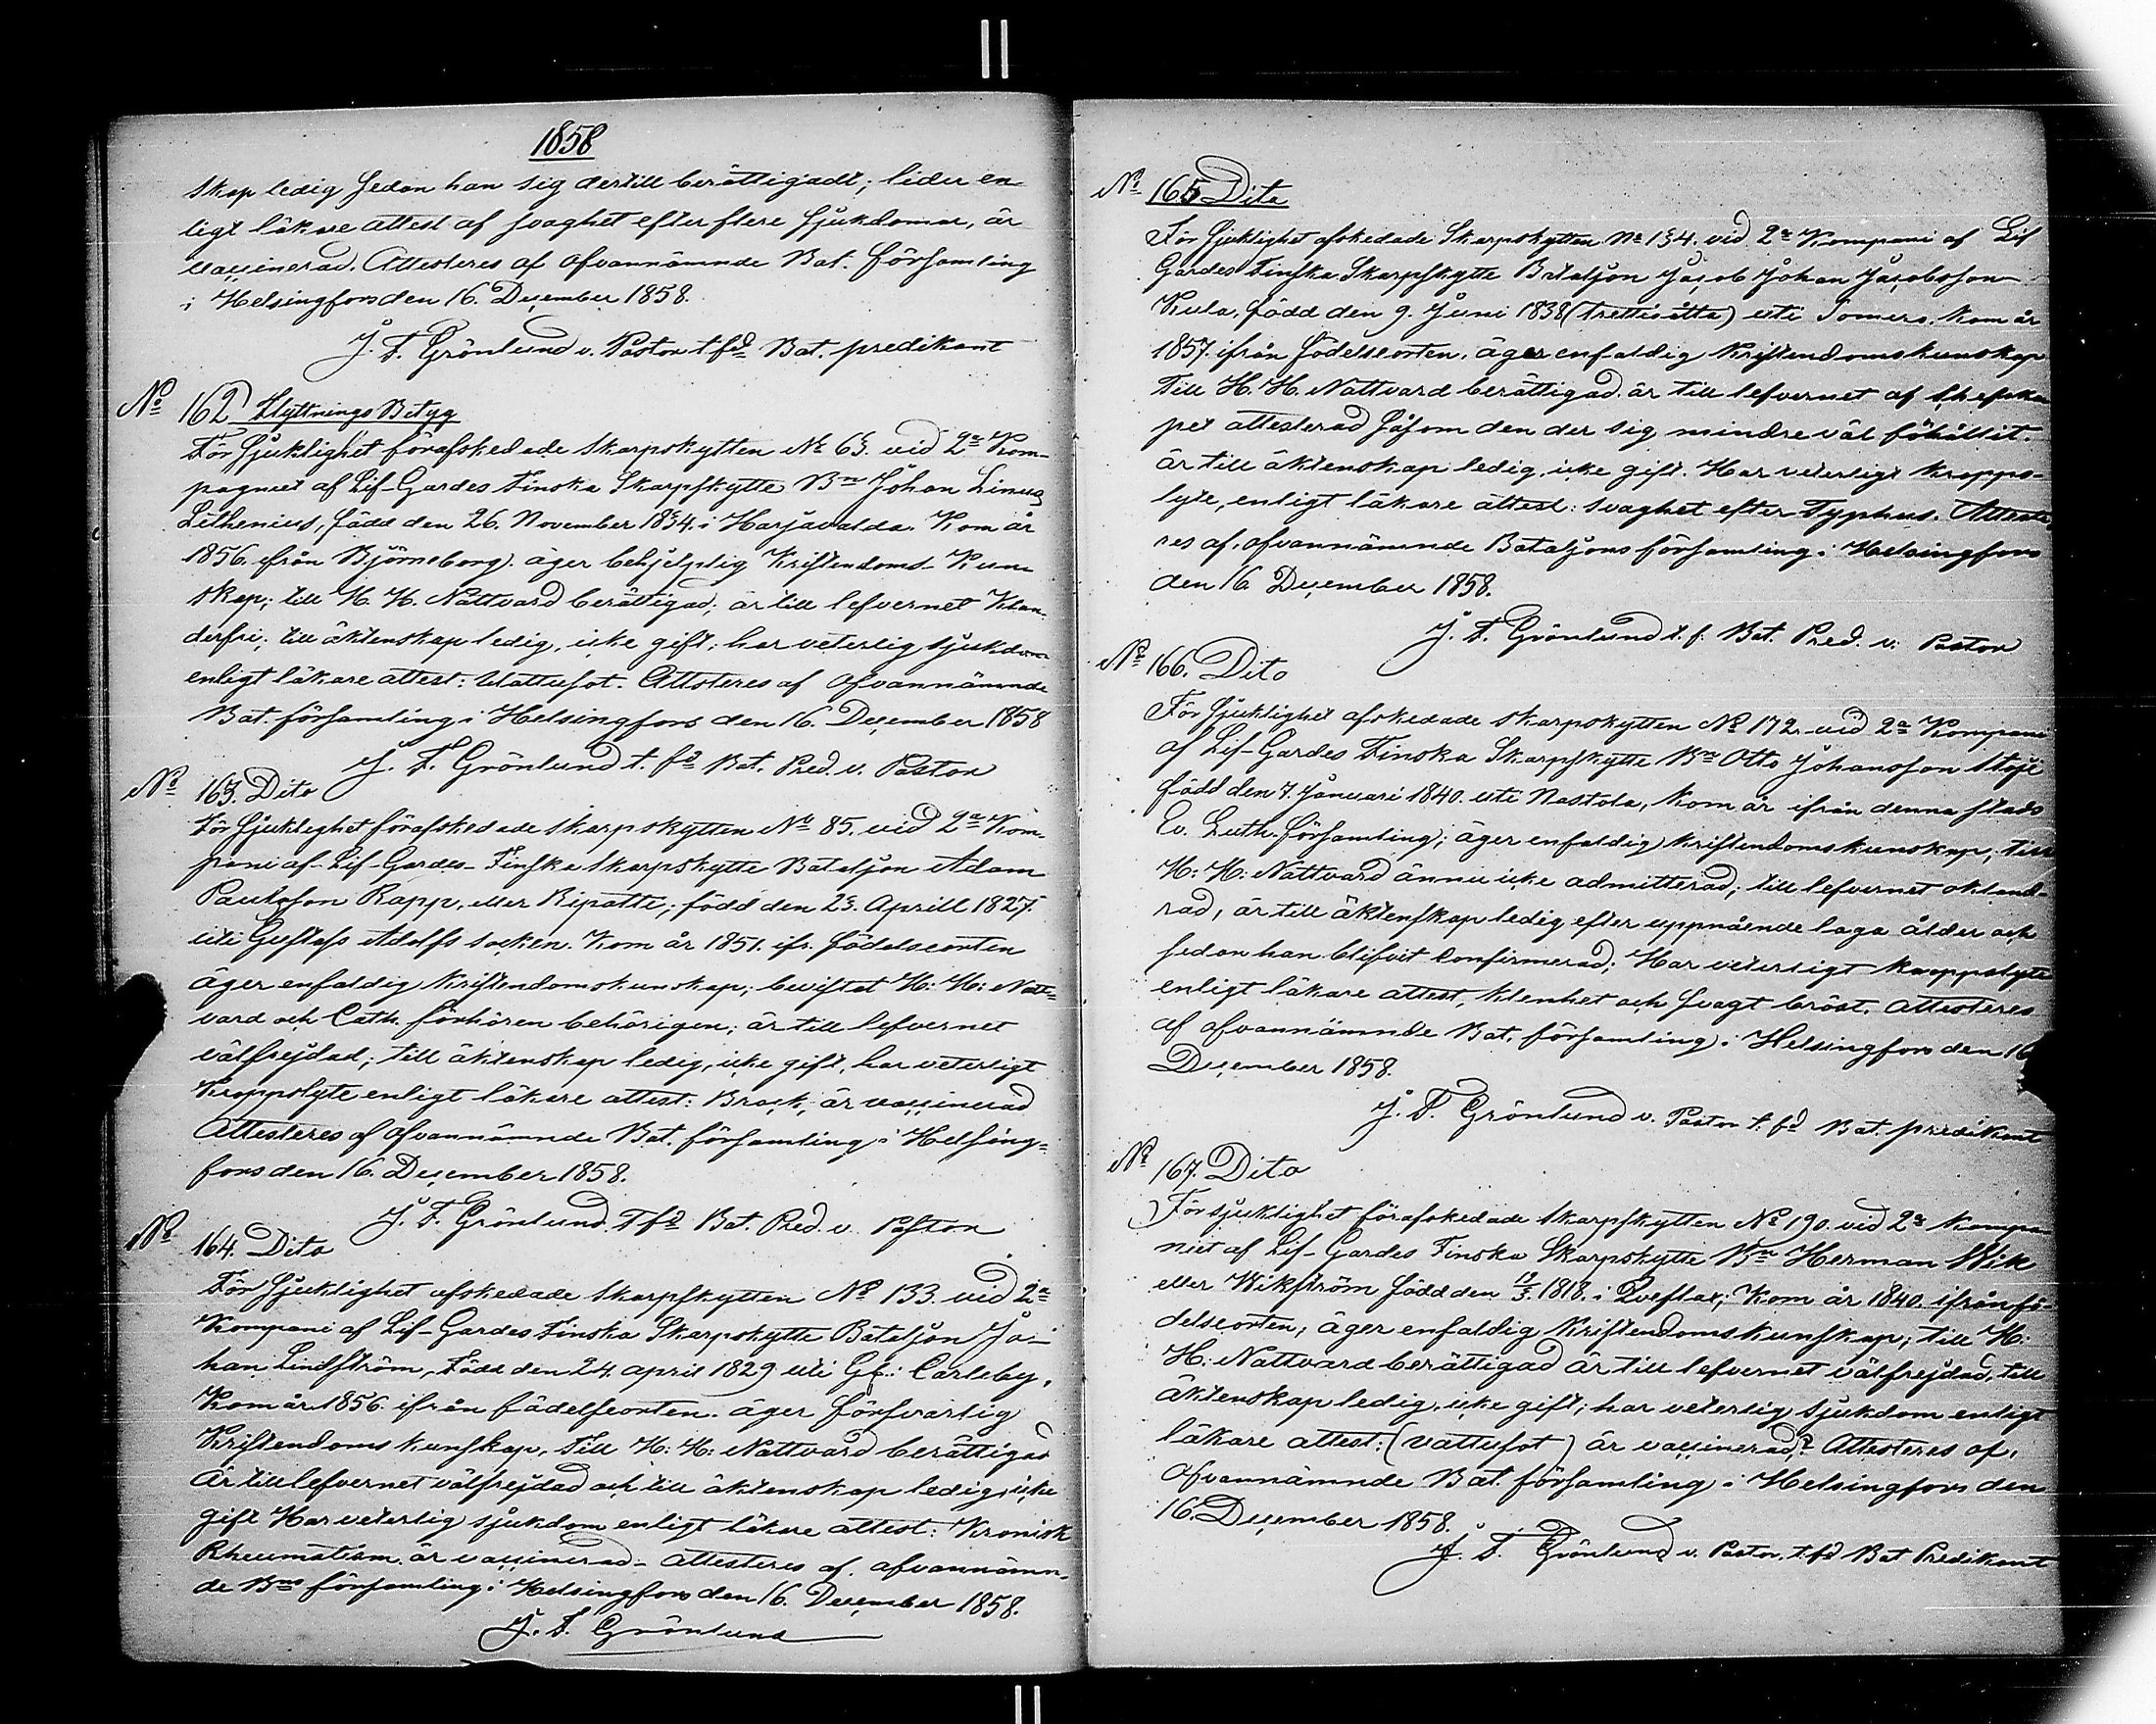 1858
skap ledig sedan han sig dertill berättigadt; lider en-
ligt läkare attest af svaghet efter flere sjukdomar, är
vaccinerad. Attesteres af ofvannämnde Bat. församling
i Helsingfors den 16. December 1858.
J. F. Grönlund v. Pastor t fd Bat. predikant
No 162 Flyttnings Betyg
För sjuklighet förafskedade skarpskytten No 63. vid 2a Kom-
pagniet af Lif-Gardes Finska Skarpskytte Bn Johan Linus
Lithenius, född den 26. November 1834. i Harjavalda. Kom år
1856. ifrån Björneborg. äger behjelplig Kristendoms-Kun-
skap; till H. H. Nattvard berättigad; är till lefvernet Klan-
derfri; till äktenskap ledig, icke gift; har veterlig sjukdom
enligt läkare attest: Vattusot. Attsteres af ofvannämnde
Bat. församling i Helsingfors den 16. December 1858
J. F. Grönlund t. fd Bat. Pred. v. Pastor
No 163. Dito
För sjuklighet förafskedade skarpskytten No 85. vid 2a Kom-
pani af Lif-Gardes-Finska Skarpskytte Bataljon Adam
Paulsson Rapp, eller Ripatte; född den 23. Aprill 1827.
uti Gustafs Adolfs socken. Kom år 1851. ifr. födelseorten
äger enfaldig Kristendomskunskap; bevistat H: H: Natt-
vard och Cath. förhören behörigen; är till lefvernet
välfrejdad; till äktenskap ledig, icke gift, har veterligt
Kroppslyte enligt läkare attest: Brock, är vaccinerad
Attesteres af ofvannämnde Bat. församling i Helsing-
fors den 16. December 1858.
J. F. Grönlund T fd Bat. Pred. v. Pastor
No 164. Dito
För sjuklighet afskedade Skarpskytten No 133. vid 2a
Kompani af Lif-Gardes Finska Skarpskytte Bataljon Jo-
han Lindström, Född den 24. april 1829 uti Gl: Carleby,
Kom år 1856. ifrån födelseorten. äger försvarlig
Kristendoms kunskap, till H: H: Nattvard berättigad
Är till lefvernet välfrejdad och till äktenskap ledig, icke
gift Har veterlig sjukdom enligt läkare attest: Kronisk
Rheumatism. är vaccinerad - attesteres af. ofvannämn-
de Bns församling i Helsingfors den 16. December 1858.
J. F. Grönlund
No 165 Dito
För sjuklighet afskedade Skarpskytten No 134. vid 2a Kompani af Lif
Gardes Finska Skarpskytte Bataljon Jacob Johan Jacobsson
Kula, född den 9. Juni 1838 (trettisåtta) uti Somero. Kom år
1857. ifrån födelseorten. äger enfaldig Kristendomskunskap
till H. H. Nattvard berättigad. är till lefvernet af
pet attesterad såsom den der sig mindre väl föhållit.
är till äktenskap ledig, icke gift. Har veterligt Kropps-
lyte, enligt läkare attest: svaghet efter Typhus. Atteste-
res af ofvannämnde Bataljons församling i Helsingfors
den 16 December 1858.
J. F. Grönlund t. f. Bat. Pred. v. Pastor
No 166. Dito
För sjuklighet afskedade skarpskytten No 172. vid 2a Kompani
af Lif-Gardes Finska Skarpskytte Bn Otto Johansson
född den 7. Januari 1840. uti Nastola, kom år ifrån denna stads
Ev. Luth. församling; äger enfaldig Kristendomskunskap; till
H: H: Nattvard ännu icke admitterad; till lefvernet okland-
rad, är till äktenskap ledig efter uppnående laga ålder och
sedan han blifvit Confirmerad; Har veterligt kroppslyte
enligt läkare attest, klenhet och svagt bröst. attesteres
af ofvannämnde Bat. församling i Helsingfors den 16
December 1858.
J. F. Grönlund v. Pastor t. fd Bat. predikant
No 167. Dito
För sjuklighet förafskedade skarpskytten No 190. vid 2a Kompa-
niet af Lif-Gardes Finska Skarpskytte Bn Herman Wik
eller Wikström född den 12/3. 1818. i Queflax; Kom år 1840. ifrån fö-
delseorten; äger enfaldig Kristendomskunskap; till H:
H: Nattvard berättigad är till lefvernet välfrejdad, till
äktenskap ledig, icke gift; har veterlig sjukdom enligt
läkare attest: (vattusot) är vaccinerad? Attesteres af,
ofvannämnde Bat. församling i Helsingfors den
16. December 1858.
J. F. Grönlund v. Pastor. t. fd Bat Predikant